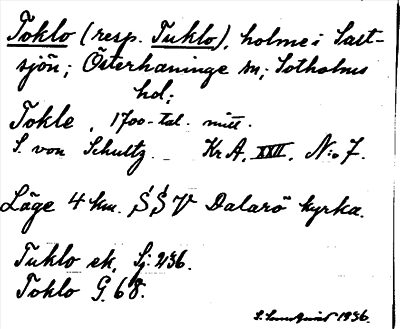 Toklo (resp. Tuklo), holme i Salt-
sjön; Österhaninge sn; Sotholms
hd;
Tokle, 1700-tal. mitt.
S. von Schultz. KrA, XXII, N:o 7.
Läge 4 km. SSV Dalarö kyrka.
Tuklo ek. Sj. 236.
Toklo G. 68.
1936.